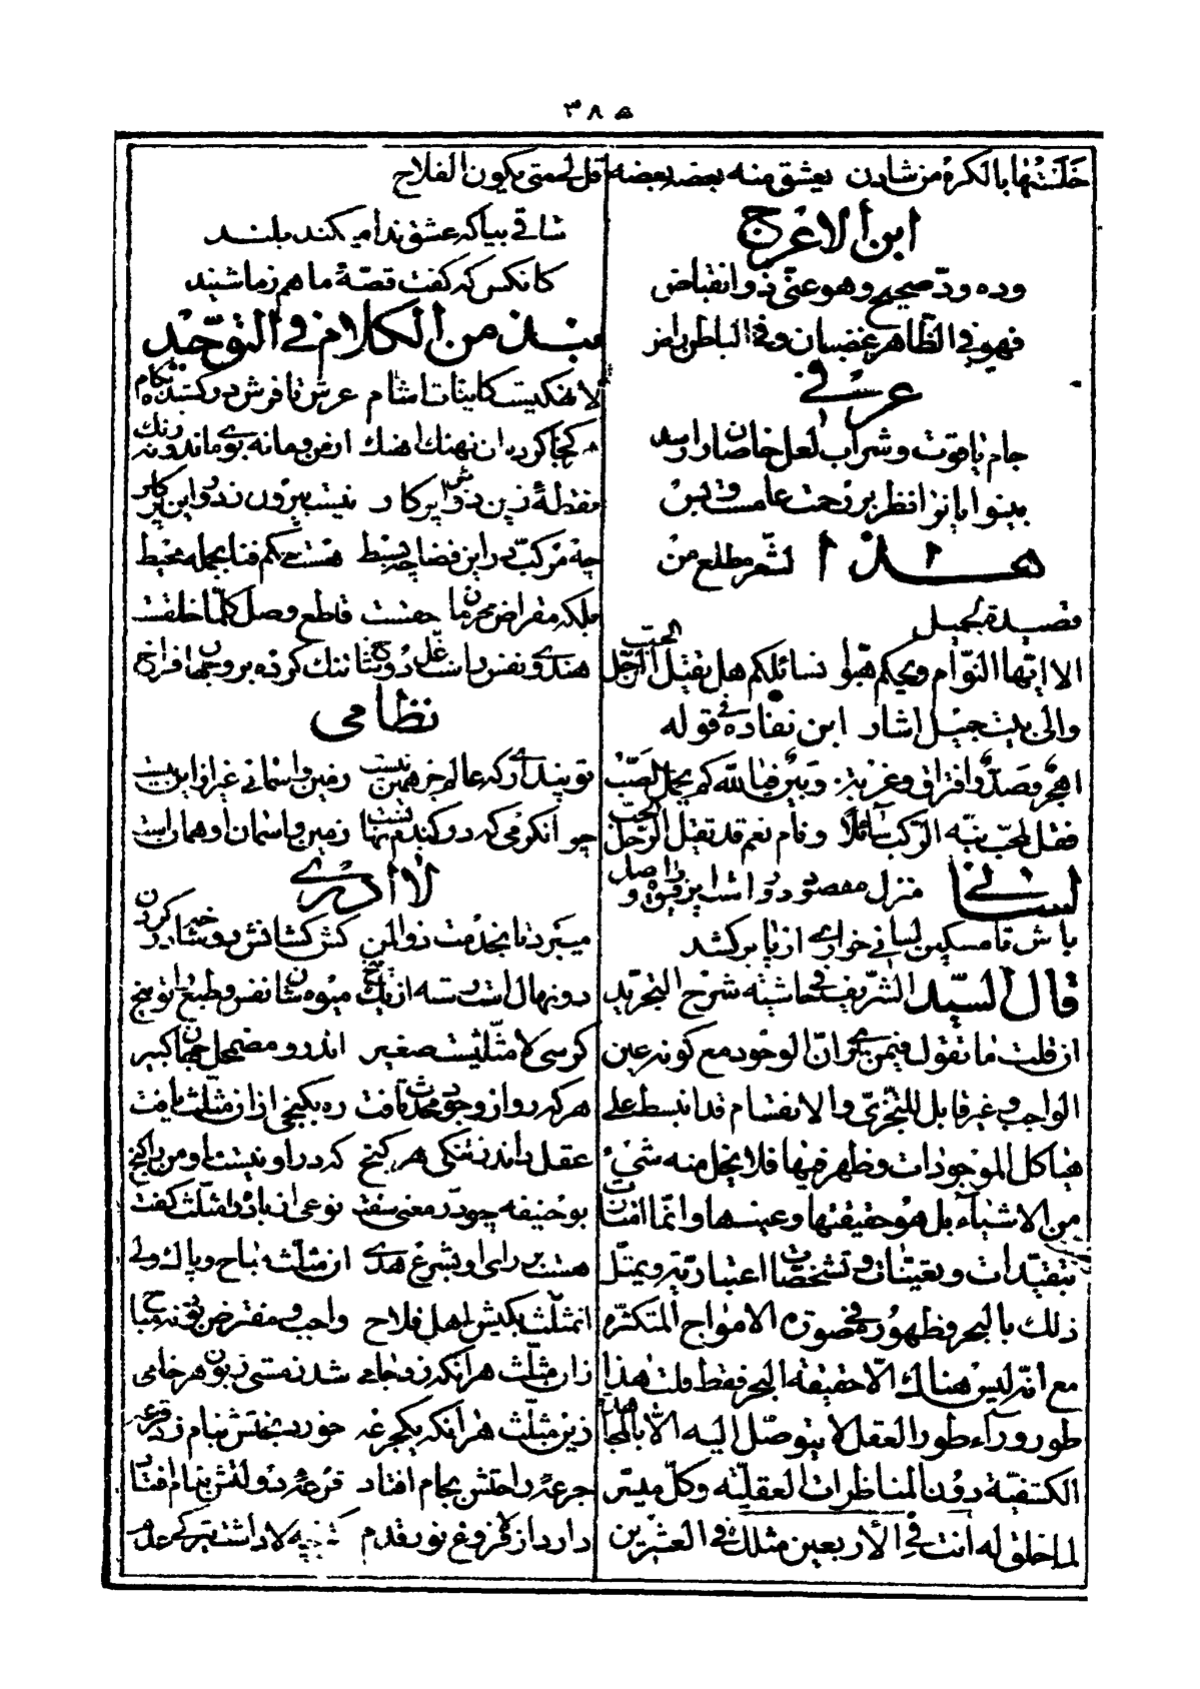 ٣٨٥
خلتها بالكره من شادن يعشق منه بعضه بعضه
ابن الأعرج
وده ودّ صحيح وهو عنّي ذو انقباض
فهو في الظّاهر غضبان وفي الباطن راض
عرفي
جام ياقوت وشراب لعل خاصان را رسد
بينوايانرا نظر بر رحمت عامست وبس
هذا الشعر مطلع من
قصيدة لجميل
الا ايّها النوّام ويحكم هبّوا نسائلكم هل يقتل الرّجل الحبّ
والى بيت جميل اشار ابن نفاده في قوله
اهجر وصدّ وافتراق وغربة وبين فيا لله كم يحمل الصّبّ
فقل لمحبّ نبّه الرّكب سائلا ونام نعم قد يقتل الرّجل الحبّ
لسانى منزل مقصود دور است اى رفيق و
باش تا مسكين لسانى خوارى از پا بركشد
قال السيّد الشّريف في حاشية شرح التجريد
ان قلت ما تقول فيمن يرى انّ الوجود مع كونه عين
الواجب وغير قابل للتجزّي والانقسام قد انبسط على
هياكل الموجودات وظهر فيها فلا يخل منه شيء
من الاشياء بل هو حقيقتها وعينها وانّما امتازت
بتقيّدات وتعيّنات وتشخّصات اعتباريّة ويمثّل
ذلك بالبحر وظهوره في صورة الامواج المتكثّره
مع انّه ليس هناك الّا حقيقة البحر فقط قلت هذا
طور وراء طور العقل لا يتوصّل اليه الّا بالمجاهدات
الكشفيّة دون المناظرات العقليّة وكلّ ميسّر
لما خلق له أنت في الأربعين مثلك في العشرين
قل لي متى يكون الفلاح
ساقى بيا كه عشق ندا ميكند بلند
كانكس كه گفت قصّه ما هم ز ما شنيد
نبذ من الكلام في التوحيد
لا نهنگيست كاينات اشام عرش تا فرش در كشيده بكام
هر كجا كرده ان نهنك اهنك از من وما نه بوى مانده نه رنك
نقطه زين دواير پركار نيست بيرون ز دور اين پركار
چه مركّب در اين فضا چه بسيط هست حكم فنا بجمله محيط
بلكه مقراض محرمان حقست قاطع وصل كلّما خلقت
هندوى نفس راست غل دو شاخ تنك كرده بر وجهان فراخ
نظامى
تو پندارى كه عالم جز همين نيست زمين واسمانى غير از اين نيست
چو آن كرمى كه در گندم نهانست زمين واسمان او همانست
لا ادرى
ميبرد تا بخدمت ذو المن كش كشانش دو شاخه در گردن
دو نهال است رسته از يك بيخ ميوه شان نفس وطبع را توبيخ
كرسى لا مثلّثيست صغير اندرو مضمحل جهان كبير
هر كه رو از وجود محدث تافت ره بكنجى از ان مثلّث يافت
عقل داند ز تنگى هر كنج كه در او نيست ما ومن را كنج
بو حنيفه چو درّ معنى سفت نوعى از باده را مثلّث گفت
هست بر راى او بشرع هدى ان مثلّث مباح وپاك ولى
اين مثلّث بكيش اهل فلاح واجب ومفترض بود نه مباح
زان مثلّث هر انكه زد جامى شد ز مستى زبون هر خامى
زين مثلّث هر انكه يك جرعه خورد بختش بنام زد قرعه
جرعه راحتش بجام افتاد قرعه دولتش بنام افتاد
دارد از فروغ نور قدم